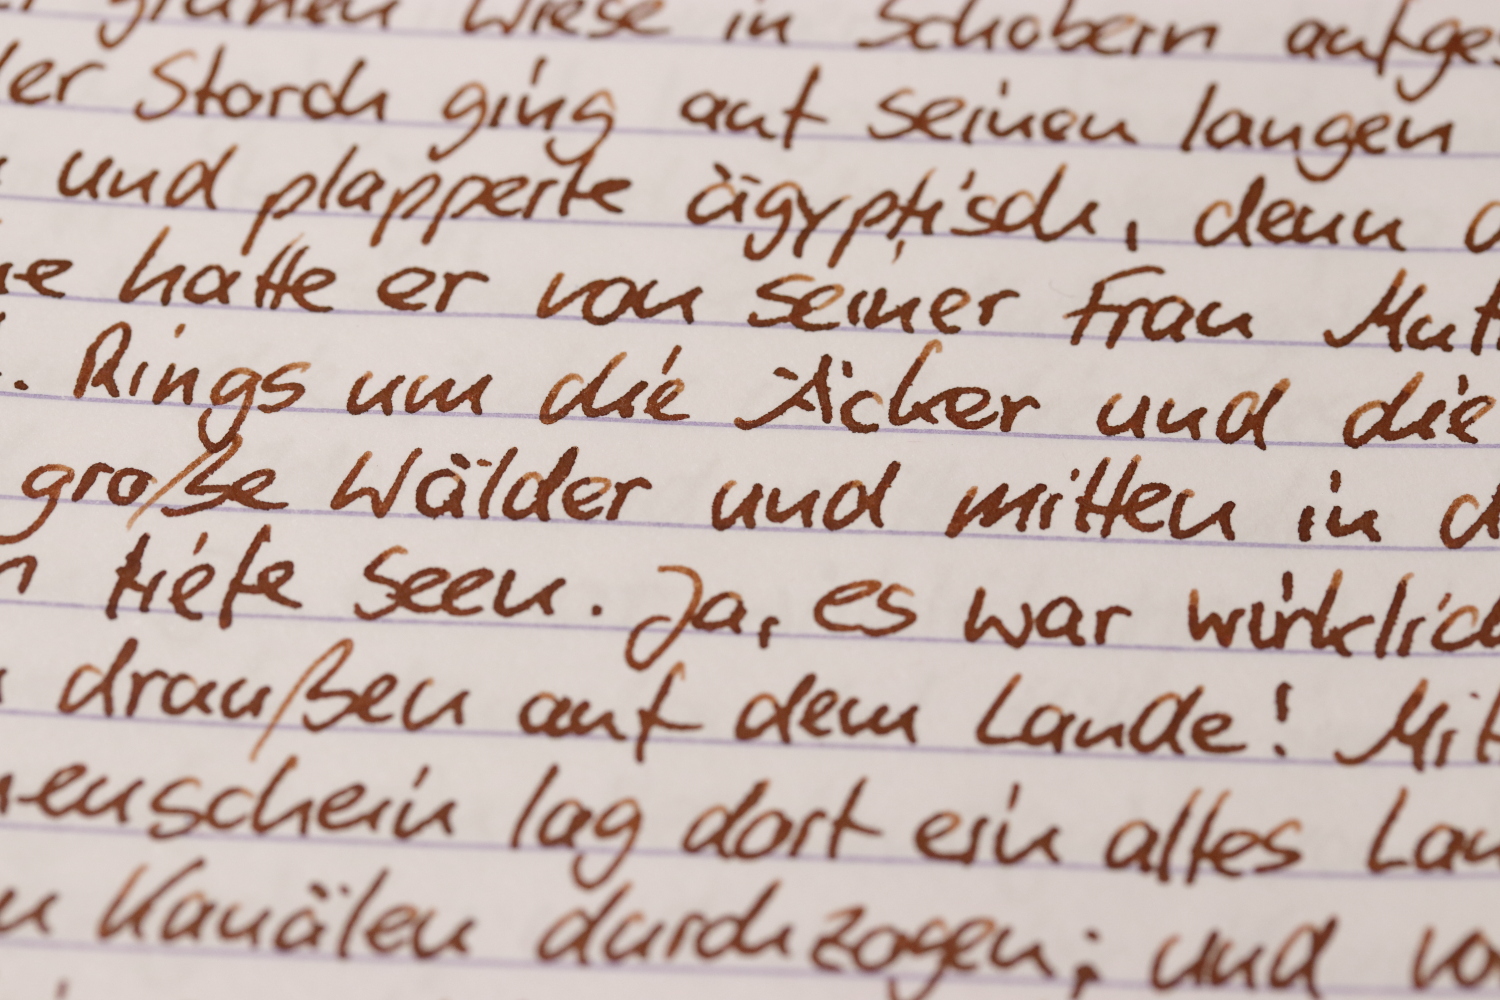 grünen Wiese in Schobern aufges
der Storch ging auf seinen langen
und plapperte ägyptisch, denn d
he hatte er von seiner Frau Mutt
. Rings um die Äcker und die
große Wälder und mitten in d
n tiefe Seen. Ja, es war wirklich
draußen auf dem Lande! Mit
nenschein lag dort ein altes Lan
n Kanälen durchzogen; und vo